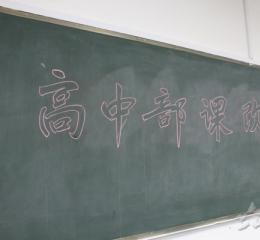 高中部课改